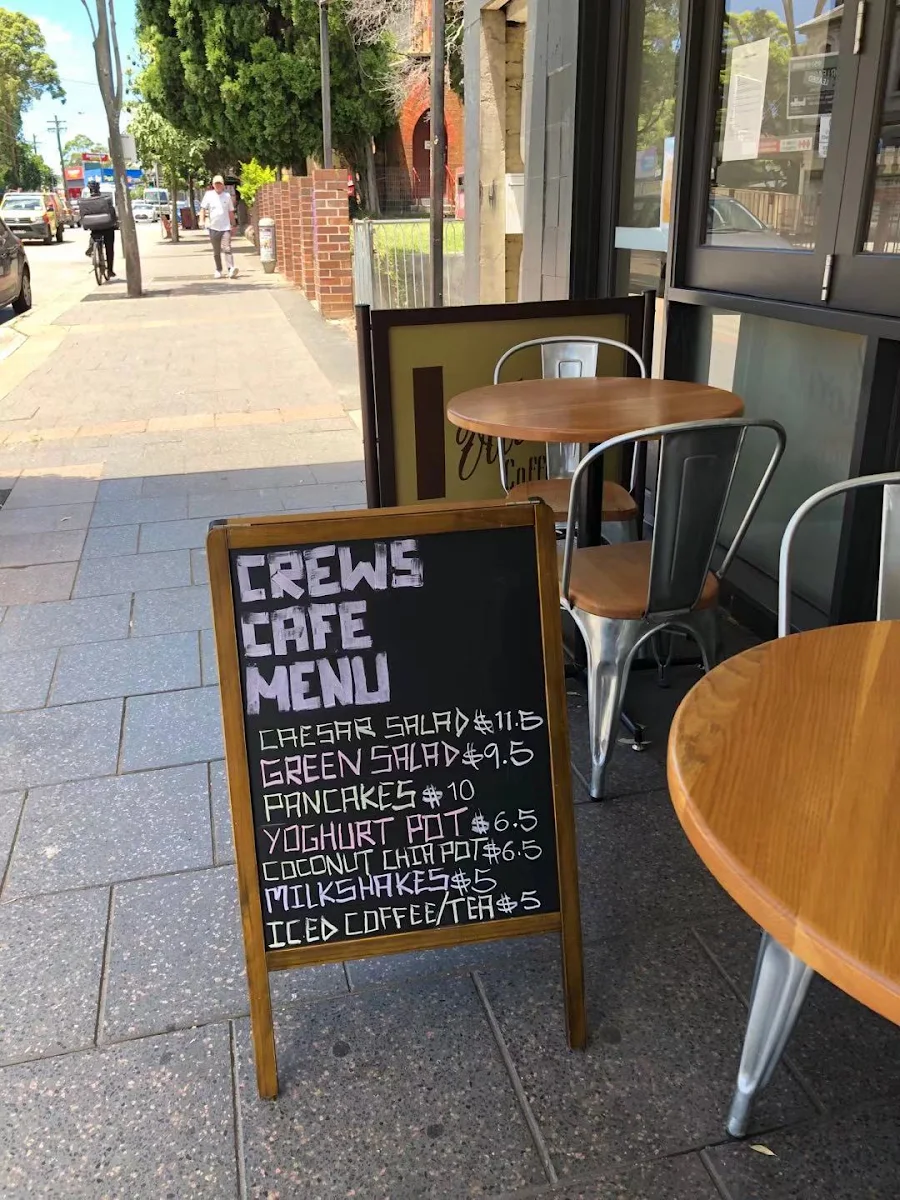 CREWS
CAFE
MENU
CAESAR SALAD $11.5
GREEN SALAD $9.5
PANCAKES $10
YOGHURT POT $6.5
COCONUT CHIA POT $6.5
MILKSHAKES $5
ICED COFFEE/TEA $5